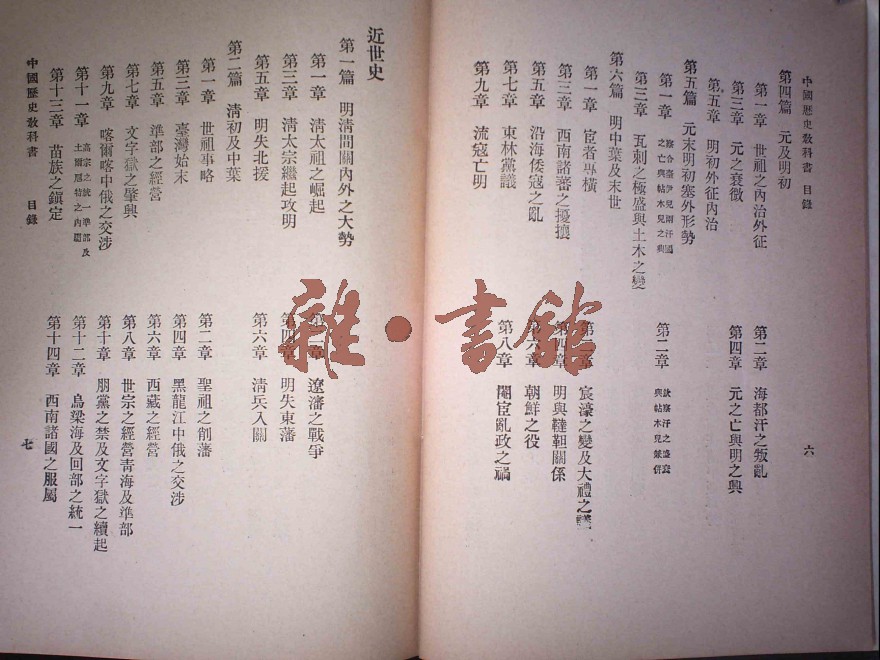 中國歷史教科書 目錄
六
第四篇 元及明初
第一章 世祖之內治外征
第二章 海都汗之叛亂
第三章 元之衰微
第四章 元之亡與明之興
第五章 明初外征內治
第五篇 元末明初塞外形勢
第一章 察合臺伊兒兩汗國之亡與帖木兒之興
第二章 欽察汗之盛衰與帖木兒之併
第三章 瓦剌之極盛與土木之變
第六篇 明中葉及末世
第一章 宦者專橫
第二章 宸濠之變及大禮之議
第三章 西南諸蕃之擾攘
第四章 明與韃靼關係
第五章 沿海倭寇之亂
第六章 朝鮮之役
第七章 東林黨議
第八章 閹宦亂政之禍
第九章 流寇亡明
近世史
第一篇 明清間關內外之大勢
第一章 清太祖之崛起
第二章 遼瀋之戰爭
第三章 清太宗繼起攻明
第四章 明失東藩
第五章 明失北援
第六章 清兵入關
第二篇 清初及中葉
第一章 世祖事略
第二章 聖祖之削藩
第三章 臺灣始末
第四章 黑龍江中俄之交涉
第五章 準部之經營
第六章 西藏之經營
第七章 文字獄之肇興
第八章 世宗之經營青海及準部
第九章 喀爾喀中俄之交涉
第十章 朋黨之禁及文字獄之續起
第十一章 高宗之統一準部及土爾扈特之內屬
第十二章 烏梁海及回部之統一
第十三章 苗族之鎮定
第十四章 西南諸國之服屬
中國歷史教科書 目錄
七
雜·書館